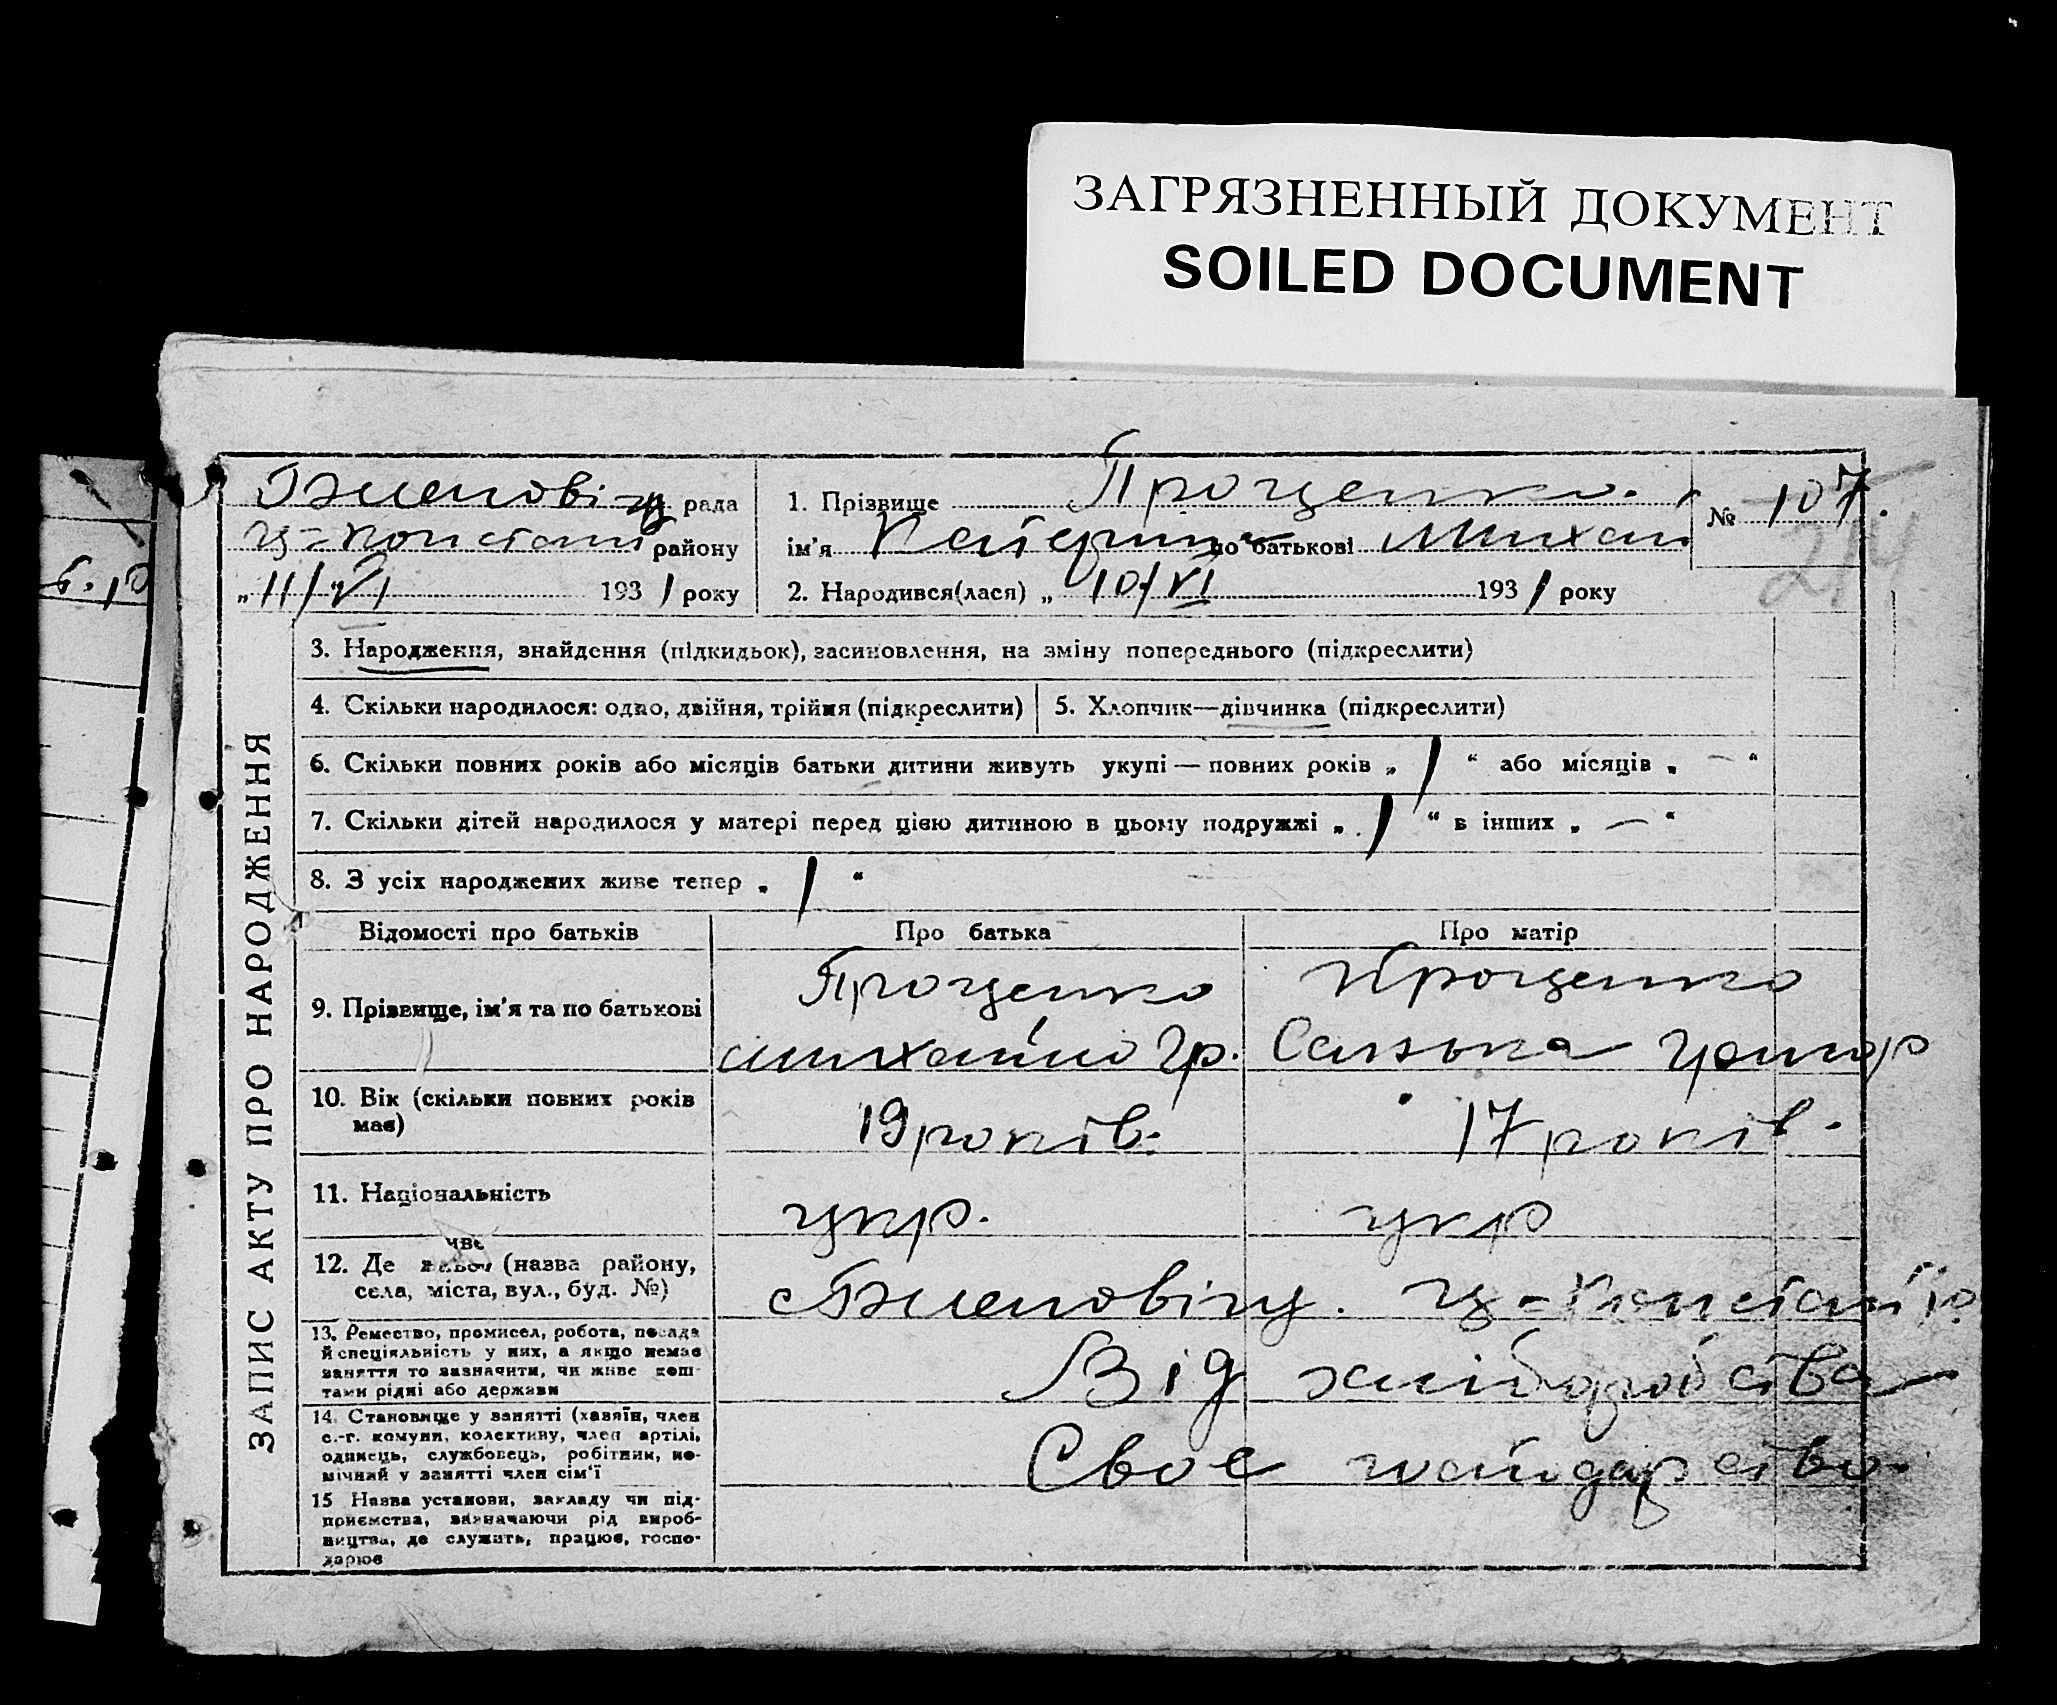 ЗАГРЯЗНЕННЫЙ ДОКУМЕНТ
SOILED DOCUMENT
рада
району
„11/VI 1931 року
1. Прізвище Проценко.
ім'я Катерина по батькові Михай
2. Народився(лася) „ 10/VI 1931 року
№ 107.
214
6.10
ЗАПИС АКТУ ПРО НАРОДЖЕННЯ
3. Народження, знайдення (підкидьок), засиновлення, на зміну попереднього (підкреслити)
4. Скільки народилося: одно, двійня, трійня (підкреслити)
5. Хлопчик—дівчинка (підкреслити)
6. Скільки повних років або місяців батьки дитини живуть укупі — повних років „ 1 “ або місяців „ — “
7. Скільки дітей народилося у матері перед цією дитиною в цьому подружжі „ 1 “ в інших „ — “
8. З усіх народжених живе тепер „ 1 “
Відомості про батьків
Про батька
Про матір
9. Прізвище, ім'я та по батькові
Проценко
Михайло Гр.
Проценко
Григор
10. Вік (скільки повних років має)
19 років.
17 років.
11. Національність
укр.
укр
12. Де живе (назва району,
села, міста, вул., буд. №)
13. Ремество, промисел, робота, посада
й спеціяльність у них, а якщо немає
заняття то зазначити, чи живе кош-
тами рідні або держави
Від хліборобства
14. Становище у занятті (хазяїн, член
с.-г. комуни, колективу, член артілі,
одинець, службовець, робітник, по-
мічний у занятті член сім'ї
Своє господарство.
15 Назва установи, закладу чи під-
приємства, зазначаючи рід вироб-
ництва, де служить, працює, госпо-
дарює